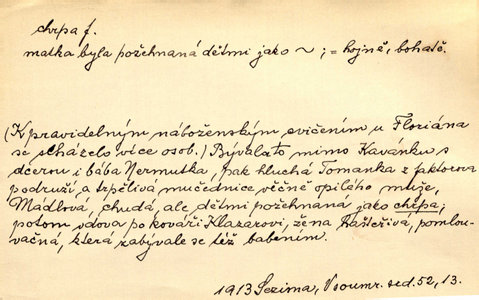 chrpa f.
matka byla požehnaná dětmi jako ~ ; = hojně, bohatě.
(K pravidelným náboženským cvičením u Floriána
se scházelo více osob.) Bývala to mimo Kavánku s
dcerou i bába Nermutka, pak hluchá Tomanka z faktorova
podruží, a trpělivá mučednice věčně opilého muže,
Mádlová, chudá, ale dětmi požehnaná jako chrpa;
potom vdova po kováři Klazarovi, žena hašteřivá, pomlou-
vačná, která zabývala se též babením.
1913 Sezima, Vsoumr. sed. 52, 13.